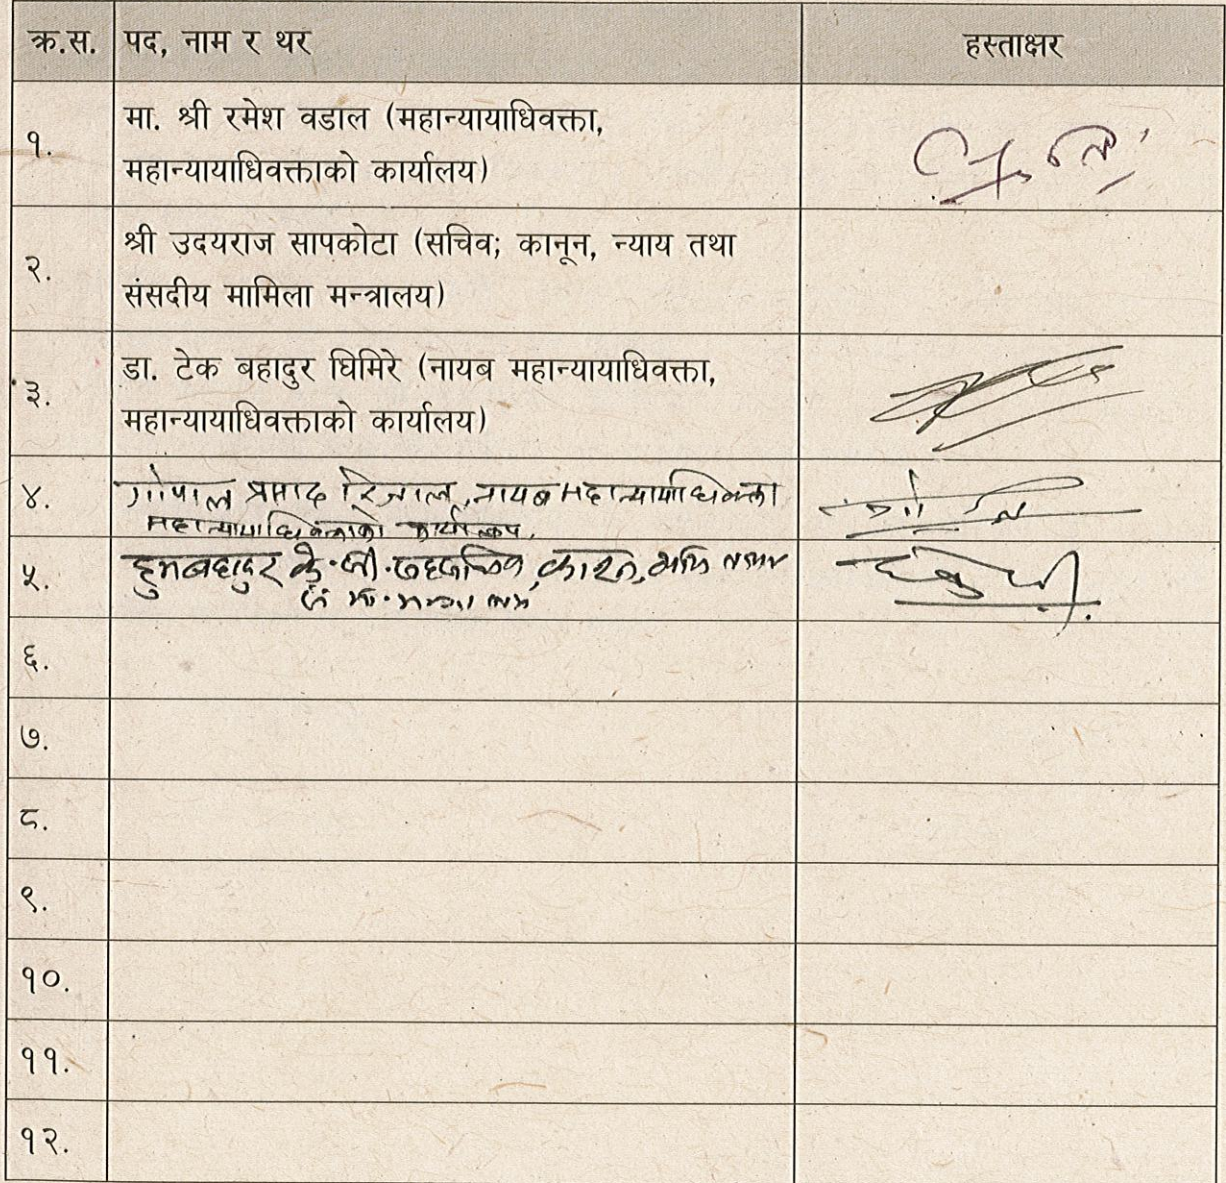 क्र.स. पद, नाम र थर हस्ताक्षर
१. मा. श्री रमेश वडाल (महान्यायाधिवक्ता,
महान्यायाधिवक्ताको कार्यालय)
२. श्री उदयराज सापकोटा (सचिव; कानून, न्याय तथा
संसदीय मामिला मन्त्रालय)
३. डा. टेक बहादुर घिमिरे (नायब महान्यायाधिवक्ता,
महान्यायाधिवक्ताको कार्यालय)
४. गोपाल प्रसाद रिजाल, नायब महान्यायाधिवक्ता
महान्यायाधिवक्ताको कार्यालय,
५. हुमबहादुर के.सी. सहसचिव, कानून,
६.
७.
८.
९.
१०.
११.
१२.